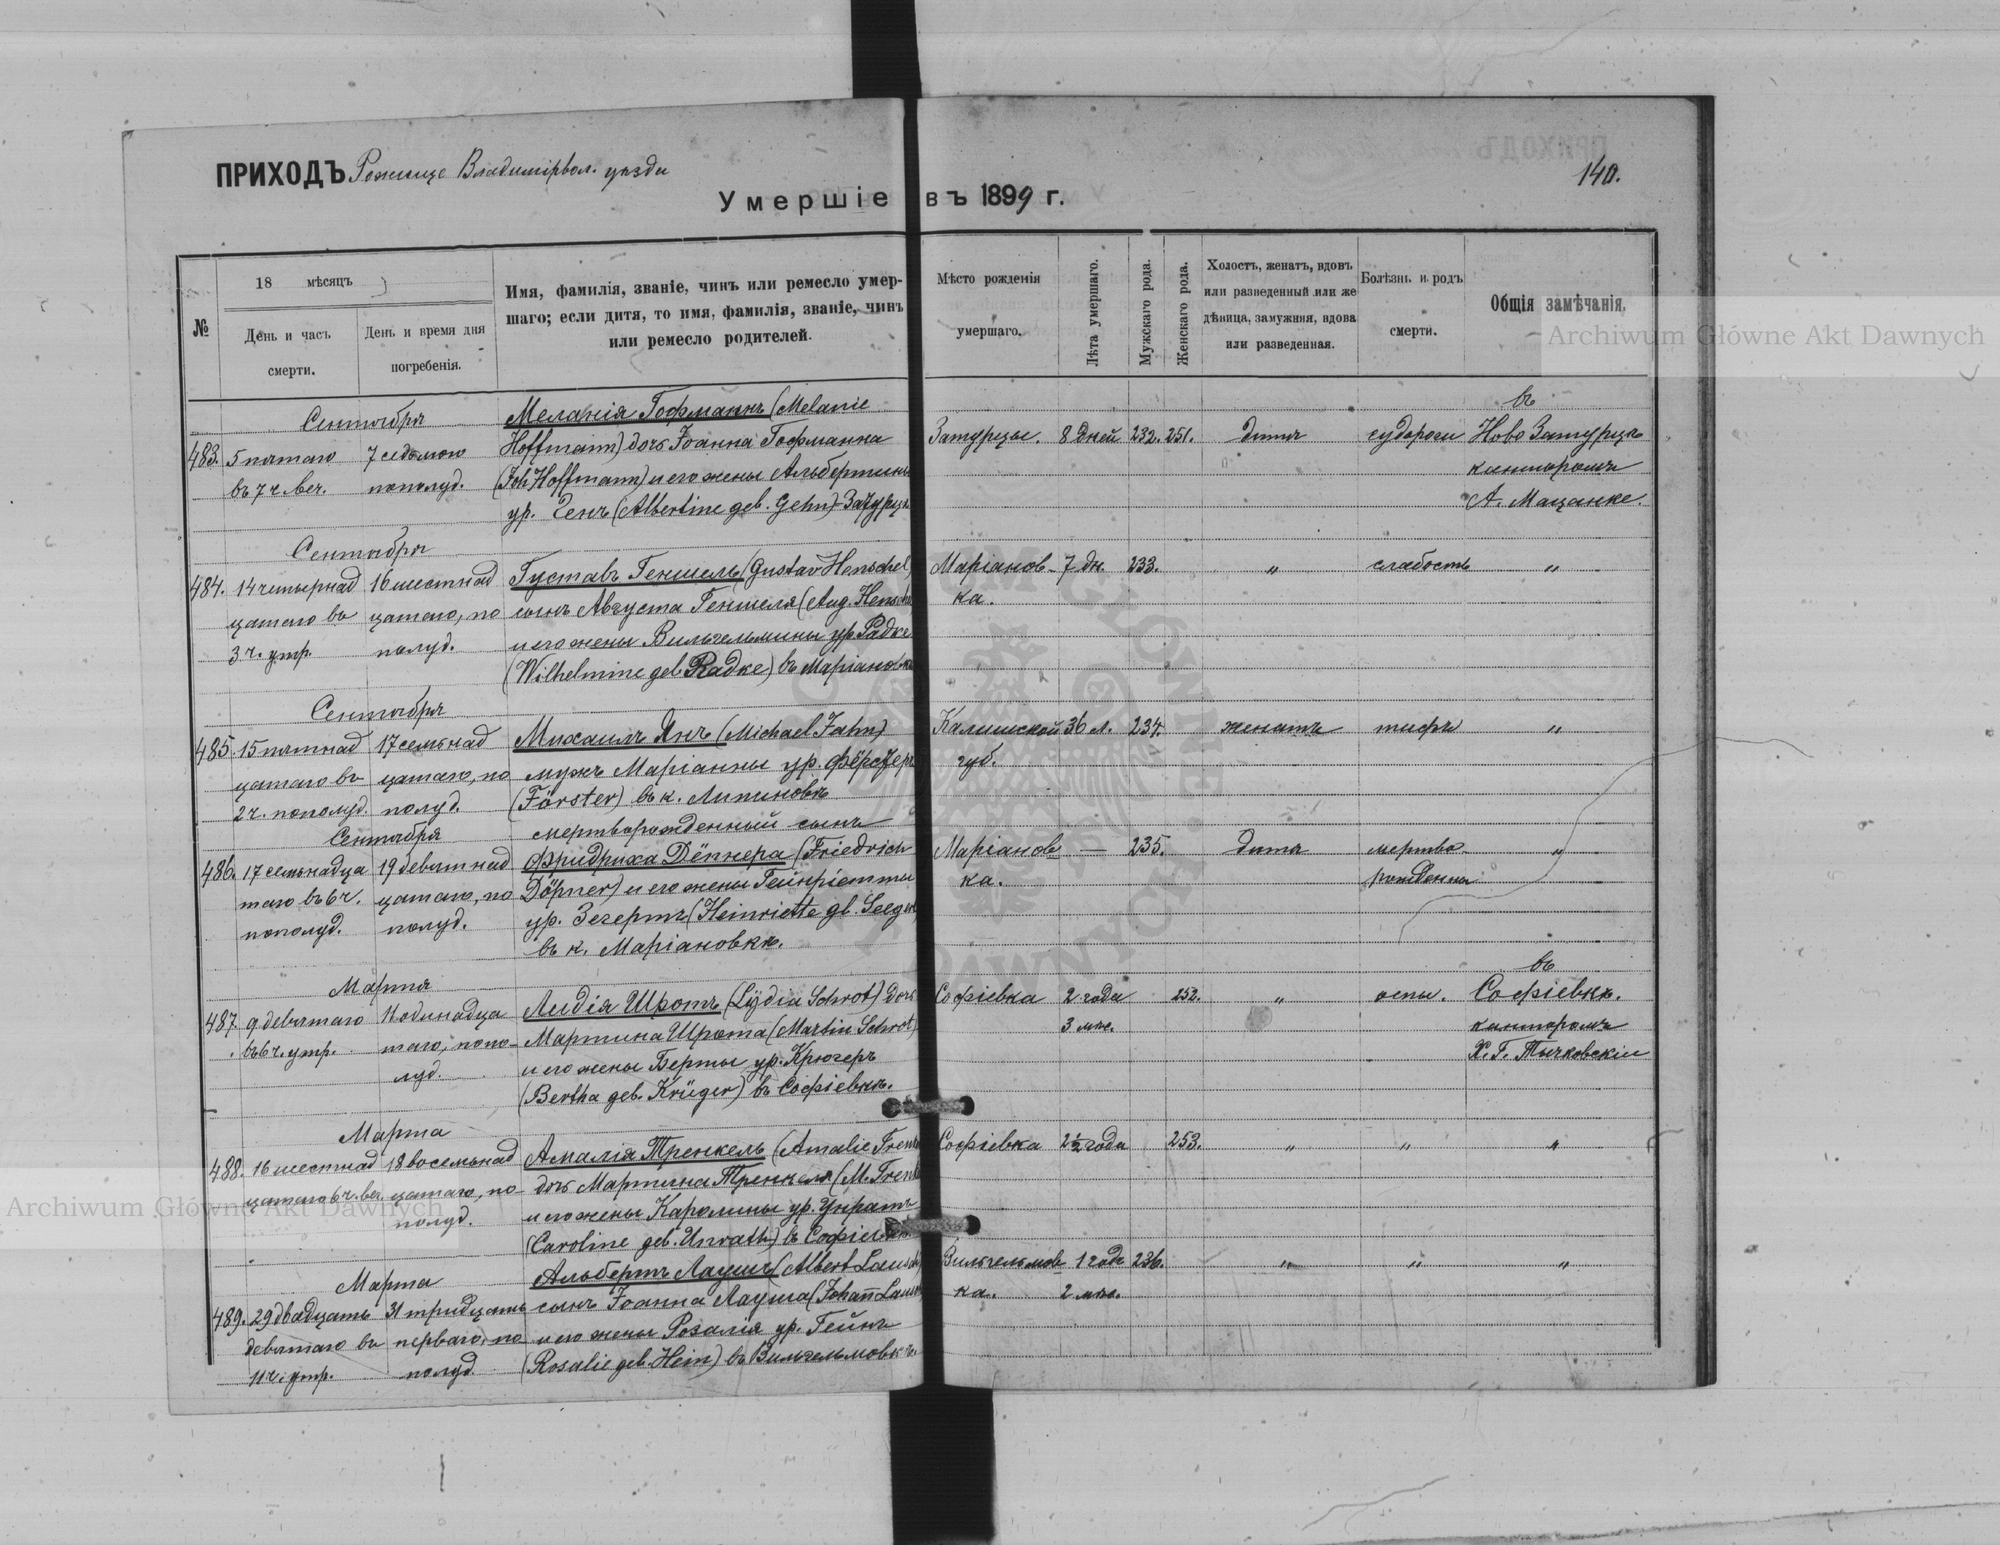 ПРИХОДЪ Рожище Владимірвол. уезда
140.
Умершіе въ 1899 г.
№
18 мѣсяцъ
День и часъ смерти.
День и время дня погребенія.
Имя, фамилія, званіе, чинъ или ремесло умер-
шаго; если дитя, то имя, фамилія, званіе, чинъ
или ремесло родителей.
Мѣсто рожденія умершаго.
Лѣта умершаго.
Мужскаго рода.
Женскаго рода.
Холостъ, женатъ, вдовъ
или разведенный или же
дѣвица, замужняя, вдова
или разведенная.
Болѣзнь и родъ смерти.
Общія замѣчанія.
Archiwum Główne Akt Dawnych
Сентября
483. 5 пятаго
въ 7 ч. веч.
7 седьмого
пополуд.
Меланія Гофманнъ (Melanie
Hoffmann) дочь Іоанна Гофманна
(Joh Hoffmann) и его жены Альбертины
ур. Генъ (Albertine geb. Gehn) Затурцы
Затурцы. 8 дней 232. 251. дитя судороги
въ
Ново Затурцѣ
канторомъ
А. Мацанке.
Сентября
484. 14 четырнад
цатаго въ
3 ч. утр.
16 шестнад
цатаго, по
полуд.
Густавъ Геншель (Gustav Henschel)
сынъ Августа Геншеля (Aug. Hensche
и его жены Вильгельмины ур Радке
(Wilhelmine geb Radke) въ Маріановкѣ
Маріанов-
ка.
7 дн. 233. " слабость "
Сентября
485. 15 пятнад
цатаго въ
2 ч. пополуд.
17 семьнад
цатаго, по
полуд.
Михаилъ Янъ (Michael Jahn)
мужъ Маріанны ур. Фёрстеръ
(Förster) въ к. Липиновкѣ
Калишской
губ.
36 л. 234. женатъ тифъ "
Сентября
486. 17 семьнадца
таго въ 6 ч.
пополуд.
19 девятнад
цатаго, по
полуд.
мертворожденный сынъ
Фридриха Дёпнера (Friedrich
Döpner) и его жены Гейнріетты
ур. Зегертъ (Heinriette gb. Seeger
въ к. Маріановкѣ.
Маріанов
ка.
— 235. дитя мертво-
рожденны "
Марта
487. 9 девятаго
въ 6 ч. утр.
11 одинадца
таго, попо-
луд.
Лидія Шротъ (Lydia Schrot) дочь
Мартина Шрота (Martin Schrot)
и его жены Берты ур. Крюгеръ
(Bertha geb. Krüger) въ Софіевкѣ.
Софіевка 2 года
3 мѣс.
252. " оспы.
въ
Софіевкѣ.
канторомъ
Х. Г. Тычковскіи
Марта
488. 16 шестнад
цатаго 6 ч. ве
18 восемьнад
цатаго, по-
полуд.
Амалія Тренкель (Amalie Tren
дочь Мартина Тренкеля (M. Tren
и его жены Каролины ур. Унратъ
(Caroline geb. Unrath) въ Софіевкѣ
Софіевка 2½ года 253. " " "
Archiwum Główne Akt Dawnych
Марта
489. 29 двадцать
девятаго въ
11 ч. утр.
31 тридцать
перваго, по
полуд.
Альбертъ Лаушъ (Albert Lausch)
сынъ Іоанна Лауша (Johann Laus
и его жены Розалія ур. Гейнъ
(Rosalie geb. Hein) въ Вильгельмовкѣ.
Вильгельмов-
ка.
1 годъ
2 мѣс.
236. " " "